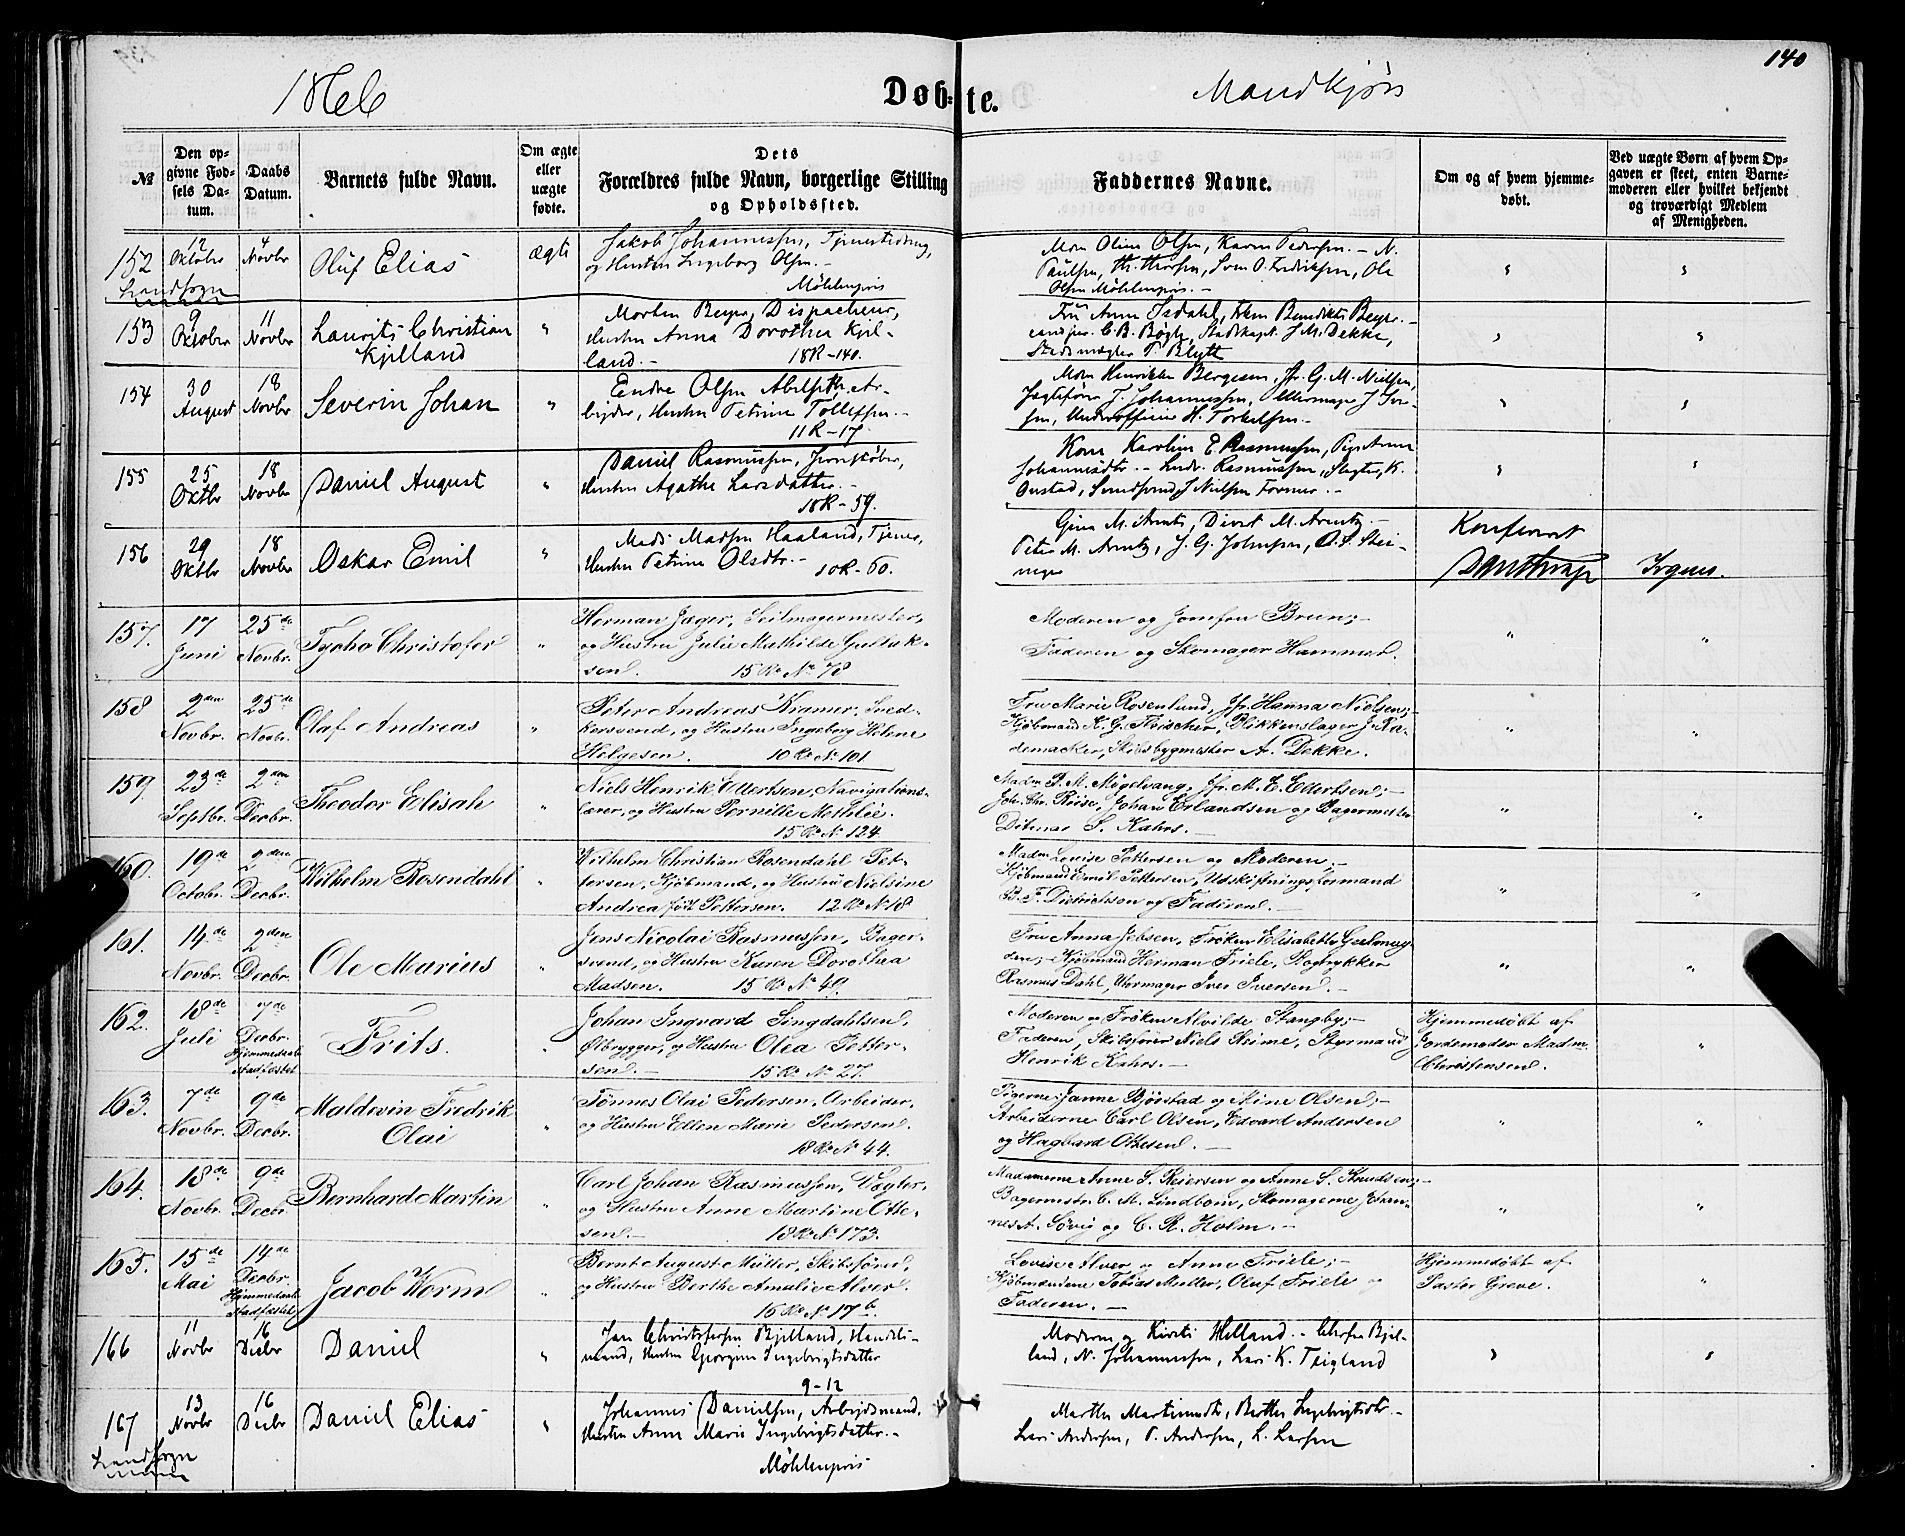 140
1866
Døbte.
Mandkjøn
№
Den opgivne Fødsels Datum.
Daabs Datum.
Barnets fulde Navn.
Om ægte eller uægte fødte.
Dets Forældres fulde Navn, borgerlige Stilling og Opholdssted.
Faddernes Navne.
Om og af hvem hjemmedøbt.
Ved uægte Børn af hvem Opgaven er skeet, enten Barnemoderen eller hvilket bekjendt og troværdigt Medlem af Menigheden.
152 12 Oktobr 4 Novbr Oluf Elias ægte
Landsogn
Jakob Johannessen, Tjenestedreng,
og Hustru Ingeborg Olsen.-
Möhlenpris
Mdm Oline Olsen, Karen Pedersen. - N.
Paulsen, Th. Thorsen, Sven O. Fredriksen, Ole
Olsen Möhlenpris. -
153 9 Oktober 11 Novbr Laurits Christian Kjelland "
Morten Beyer, Dispacheur,
Hustru Anna Dorothea Kjel-
land. - 18R-140.
Fru Anna Isdahl, Benedikte Beyer. -
cand jur. C. B. Bøgh, Stadskapt. J M. Dekke,
Stadsmægler T. Blytt
154 30 August 18 Novbr Severin Johan "
Endre Olsen, Ar-
beider, Hustru Petrine Tollefsen. -
11R-17.
Mdm Henrikke Bergesen, Jfr. G. M. Nielsen,
Jagtefører J. Johannessen, Uhrmager J Iver-
sen, Underofficier H. Torkelsen. -
155 25 Oktbr 18 Novbr Daniel August "
Daniel Rasmussen,
Hustru Agathe Larsdatter. -
18R-59.
Kone Karoline E. Rasmussen, Pige Anne
Johannesdtr. - Ludv. Rasmussen, Slagter, K.
Onstad, J Nielsen Former. -
156 29 Oktbr 18 Novbr Oskar Emil "
Mads Madsen Haaland, Tjener,
Hustru Petrine Olsdtr. - 10R-60.
Gina M. Arntz, Divert M. Arntz. -
Peter M. Arntz, J. G. Johnsen, O. S. Stei-
neger
Konfereret
Irgens.
157. 17 Juni 25de Novbr. Tycho Christofer "
Herman Jæger, Seilmagermester,
og Hustru Julie Mathilde Gullak-
sen. 15 Re No 78
Moderen og Jomfru Brun;-
Faderen og Skomager Hammer.
158 2den Novbr. 25de Novbr. Olaf Andreas "
Peter Andreas Kramer, Sned-
kersvend, og Hustru Ingeborg Helene
Helgesen. 10 Re No 101
Fru Marie Rosenlund, Jfr. Hanna Nielsen;-
Kjøbmand H. G. Fleischer, Blikkenslager J. Ra-
demacker, Skibsbygmester A. Dekke.
159 23de Septbr. 2den Decbr. Theodor Elisah "
Niels Henrik Ellertsen, Navigations-
lærer, og Hustru Pernille Mathilde.
15 Re No 124
Madm. P. M. Møgelvang, Jfr. M. E. Ellertsen;-
Joh. Chr. Riise, Johan Erlandsen og Bagermester
Ditmar S. Kahrs. -
160. 19de Octobr. 2den Decbr. Wilhelm Rosendahl "
Wilhelm Christian Rosendahl Pet-
tersen, Kjøbmand, og Hustru Nielsine
Andrea født Pettersen. 12 Re No 18
Madm. Louise Pettersen og Moderen;-
Kjøbmand Emil Pettersen, Udskiftningsformand
B. F. Didrichsen og Faderen. -
161. 14de Novbr. 2den Decbr. Ole Marius "
Jens Nicolai Rasmussen, Bager-
svend, og Hustru Karen Dorothea
Madsen. 15 Re No 40
Fru Anna Jebsen, Frøken Elisabeth Geelmuy-
den;- Kjøbmand Herman Friele, Bogtrykker
Rasmus Dahl, Uhrmager Iver Iversen. -
162. 18de Juli 7de Decbr. Hjemmedaab stadfæstet Frits. "
Johan Ingvard Singdahlsen,
Ølbrygger, og Hustru Olea Petter-
sen. - 15 Re No 27
Moderen og Frøken Alvilde Stangby;-
Faderen, Skibsfører Niels Keime, Styrmand
Henrik Kahrs. -
Hjemmedøbt af
Jordemoder Madm.
Christensen. "
163. 7de Novbr. 9de Decbr. Maldevin Fredrik Olai "
Tönnes Olai Pedersen, Arbeider,
og Hustru Ellen Marie Pedersen.
18 Re No 44.
Pigerne Janne Bjørstad og Stine Olsen;-
Arbeiderne Carl Olsen, Edvard Andersen
og Hagbard Ottesen. -
164. 18de Novbr. 9de Decbr. Bernhard Martin "
Carl Johan Rasmussen, Vægter,
og Hustru Anne Martine Otte-
sen. - 18 Re No 173.
Madamerne Anne S. Reiersen og Anne S. Knudsen;-
Bagermstr. C. M. Lindbom, Skomagerne Johan-
nes A. Søvig og C. R. Holm. -
165. 15de Mai 14de Decbr. Hjemmedaab stadfæstet Jacob Worm "
Bernt August Müller, Skibsfører,
og Hustru Berthe Amalie Alver.
16 Re No 17 b.
Lovise Alver og Anna Friele;-
Kjøbmændene Tobias Müller, Oluf Friele og
Faderen. -
Hjemmedøbt af
Pastor Greve. "
166 11 Novbr 16 Decbr Daniel "
Jan Christofersen Bjelland, Handels-
mand, Hustru Georgine Ingebrigtsdatter
9-12
Moderen og Kirsti Helland. - Chrfer Bjel-
land, N. Johannessen, Lars K. Teigland
167 13 Novbr 16 Decbr Daniel Elias "
Landsogn
Johannes Danielsen, Arbeidsmand,
Hustru Anne Marie Ingebrigtsdatter. -
Möhlenpris
Marthe Martinusdtr, Berthe Ingebrigtsdtr. -
Lars Andersen, P. Andersen, L. Larsen